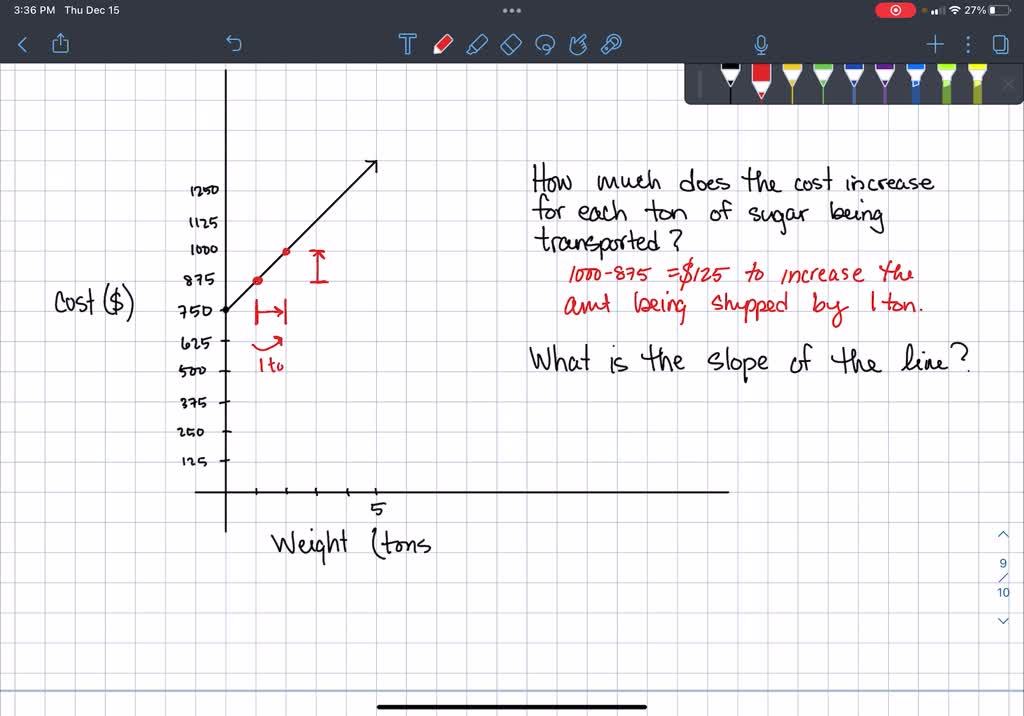 3:36 PM Thu Dec 15
27%
1250
1125
1000
875
750
625
500
375
250
125
Cost ($)
1 to
5
Weight (tons
How much does the cost increase
for each ton of sugar being
transported?
1000-875 = $125 to increase the
amt being shipped by 1 ton.
What is the slope of the line?
9
/
10